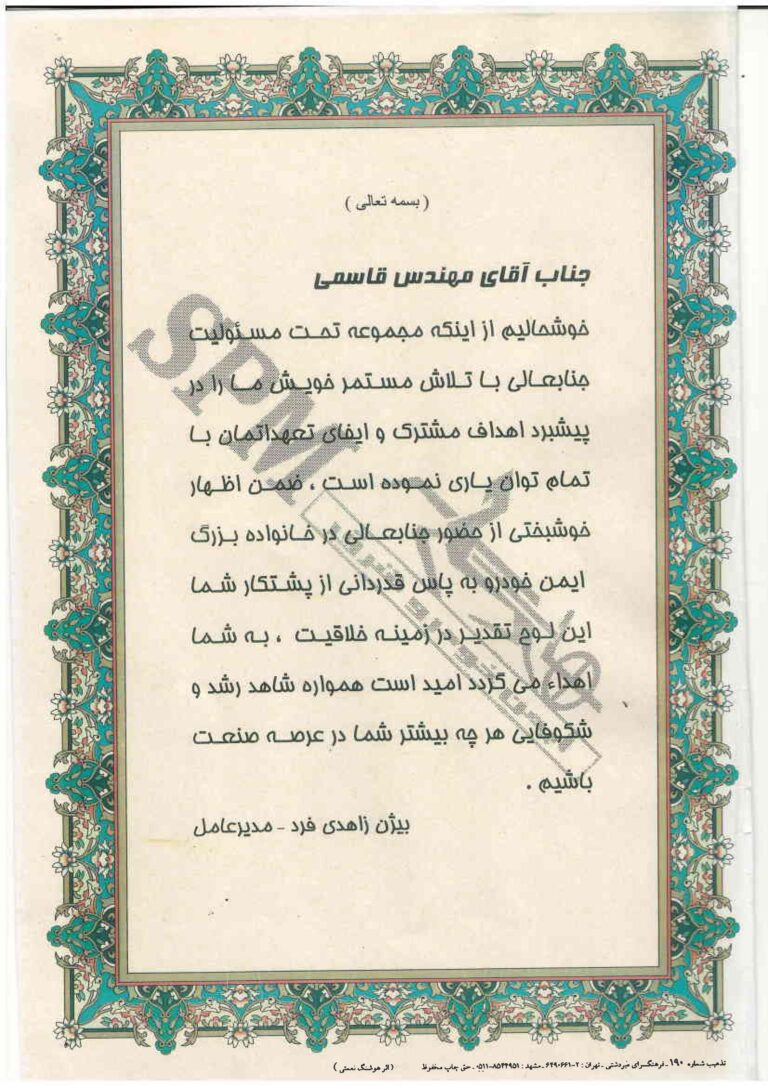 ( بسمه تعالی )
جناب آقای مهندس قاسمی
خوشحالیم از اینکه مجموعه تحت مسئولیت
جنابعالی با تلاش مستمر خویش ما را در
پیشبرد اهداف مشترک و ایفای تعهداتمان با
تمام توان یاری نموده است ، ضمن اظهار
خوشبختی از حضور جنابعالی در خانواده بزرگ
ایمن خودرو به پاس قدردانی از پشتکار شما
این لوح تقدیر در زمینه خلاقیت ، به شما
اهداء می گردد امید است همواره شاهد رشد و
شکوفایی هر چه بیشتر شما در عرصه صنعت
باشیم .
بیژن زاهدی فرد - مدیرعامل
SPM
تذهیب شماره ۱۹۰ - فرهنگسرای میردشتی - تهران : ۲-۶۴۹۰۶۶۱ - مشهد : ۸۵۴۴۹۵۱-۰۵۱۱ - حق چاپ محفوظ ( اثر هوشنگ نعمتی )